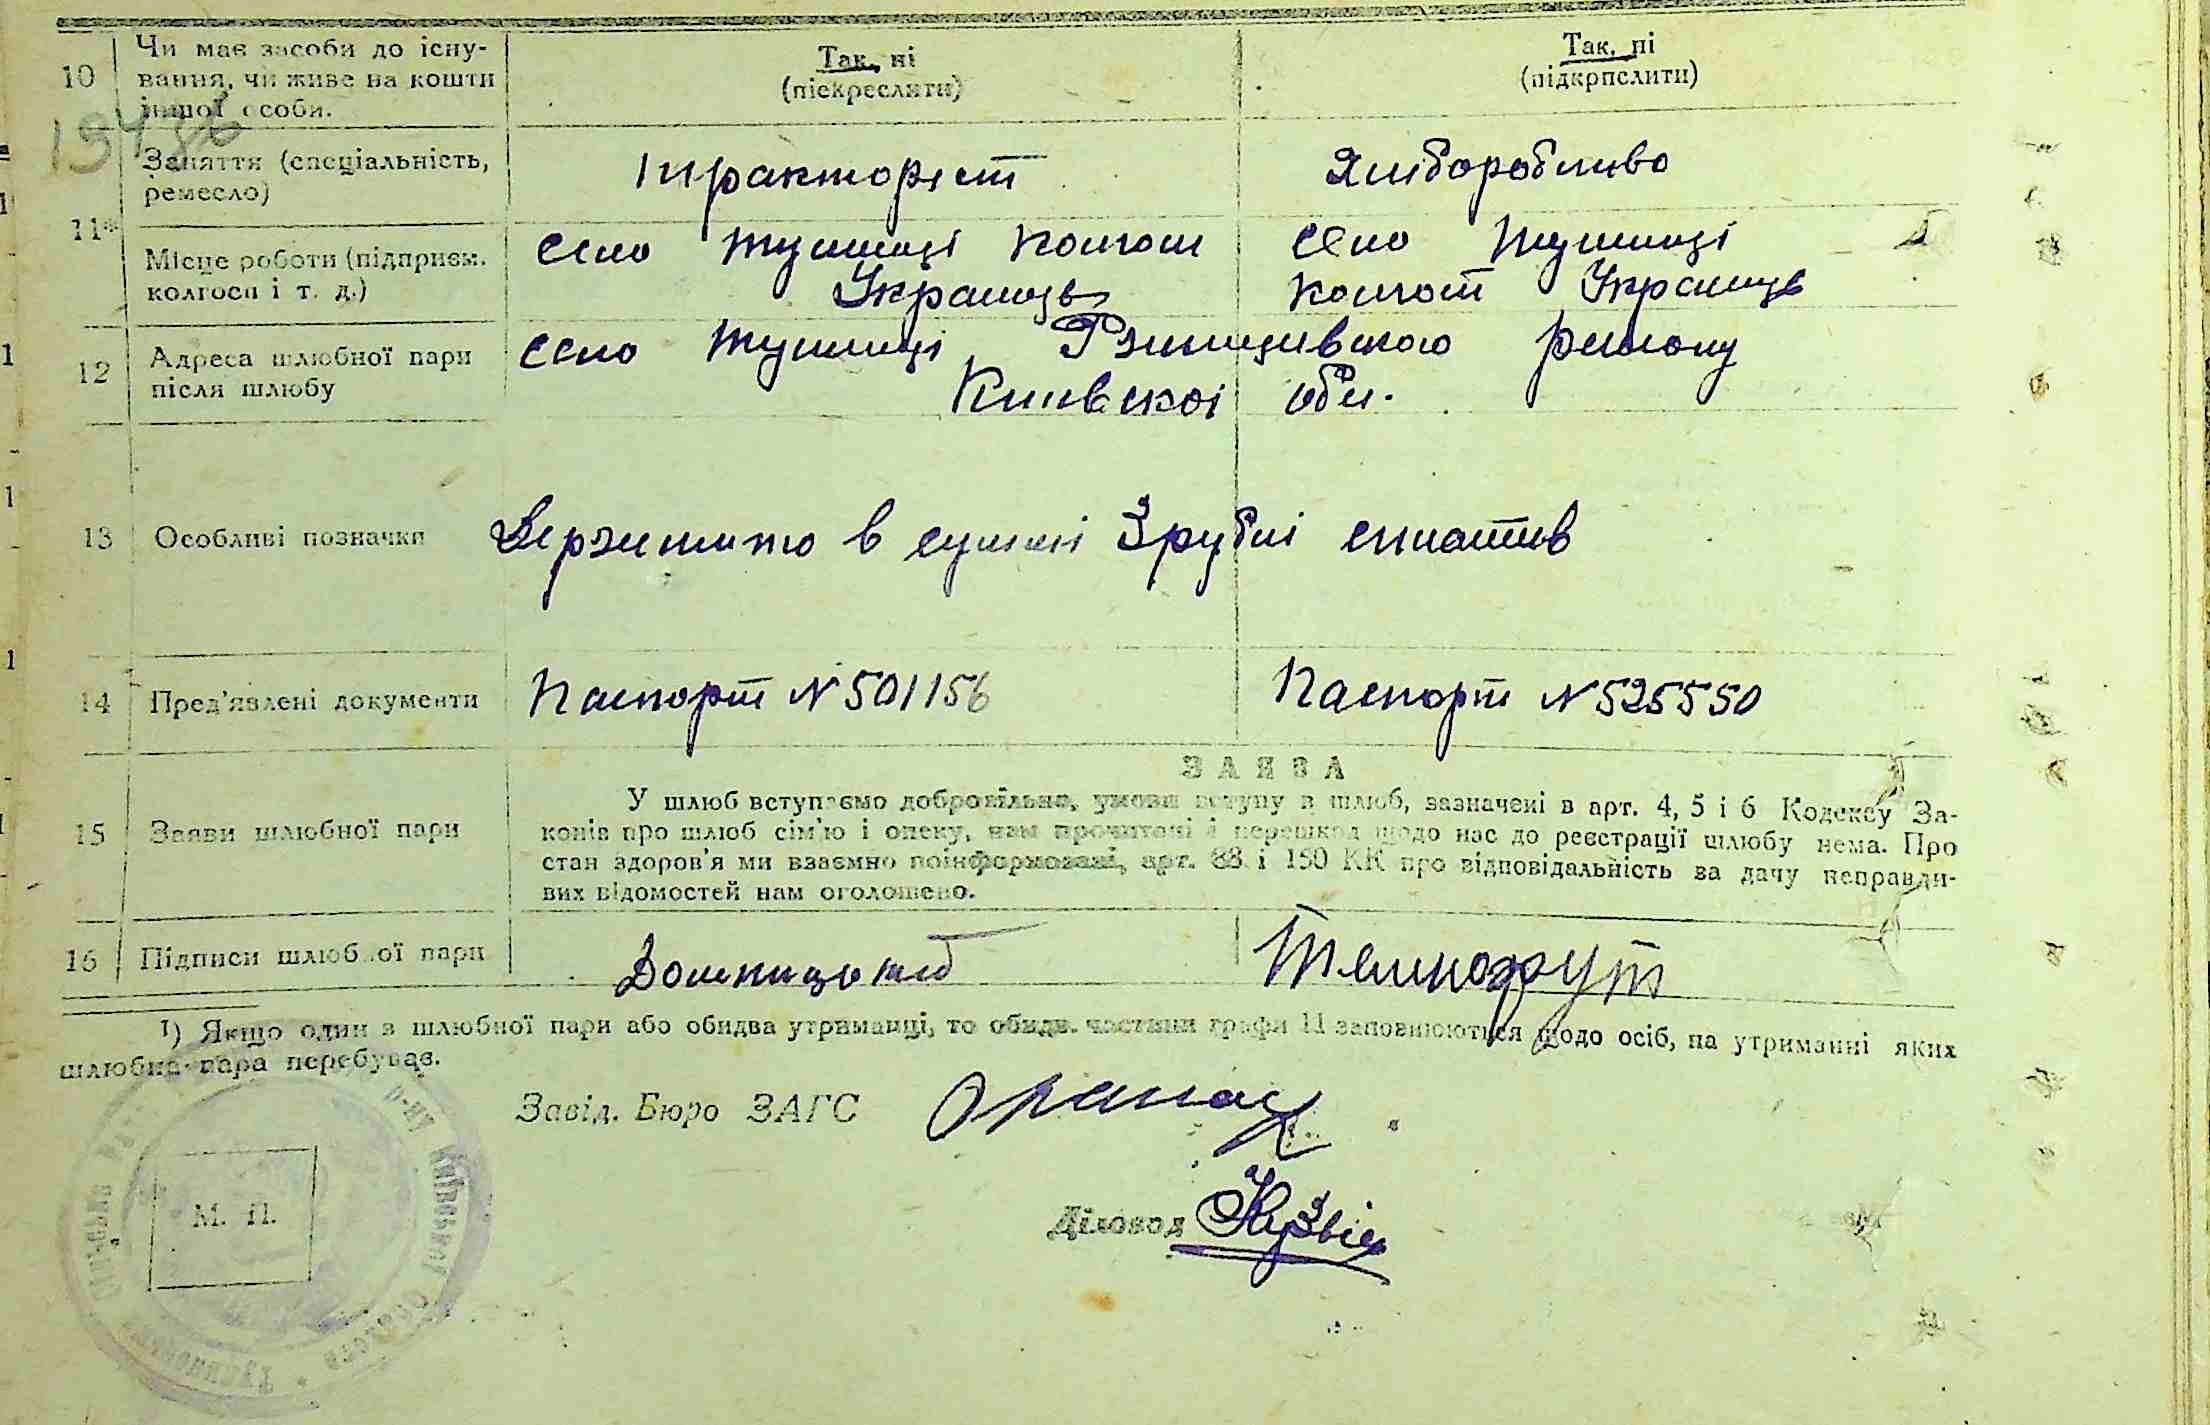 10 Чи має засоби до існу-
вання, чи живе на кошти
іншої особи.
Так, ні
(піекреслити)
Так, ні
(підкрпслити)
Заняття (спеціальність,
ремесло)
тракторист
Хліборобство
11
Місце роботи (підприєм.
колгосп і т. д.)
село колгосп
село
колгосп
12 Адреса шлюбної пари
після шлюбу
село району
Київскої обл.
13 Особливі позначки
Держмито в сумі 3 рублі сплатив
14 Пред'явлені документи
Паспорт N 501156
Паспорт N 525550
ЗАЯВА
15 Заяви шлюбної пари
У шлюб вступаємо добровільно, умови вступу в шлюб, зазначені в арт. 4, 5 і 6 Кодексу За-
конів про шлюб сім'ю і опеку, нам прочитані й перешкод щодо нас до реєстрації шлюбу нема. Про
стан здоров'я ми взаємно поінформовані, арт. 88 і 150 КК про відповідальність за дачу неправди-
вих відомостей нам оголошено.
16 Підписи шлюбної пари
1) Якщо один з шлюбної пари або обидва утриманці, то обидв. частини графи 11 заповнюються щодо осіб, на утриманні яких
шлюбна пара перебуває.
Завід. Бюро ЗАГС
М. П.
Діловод
Київської